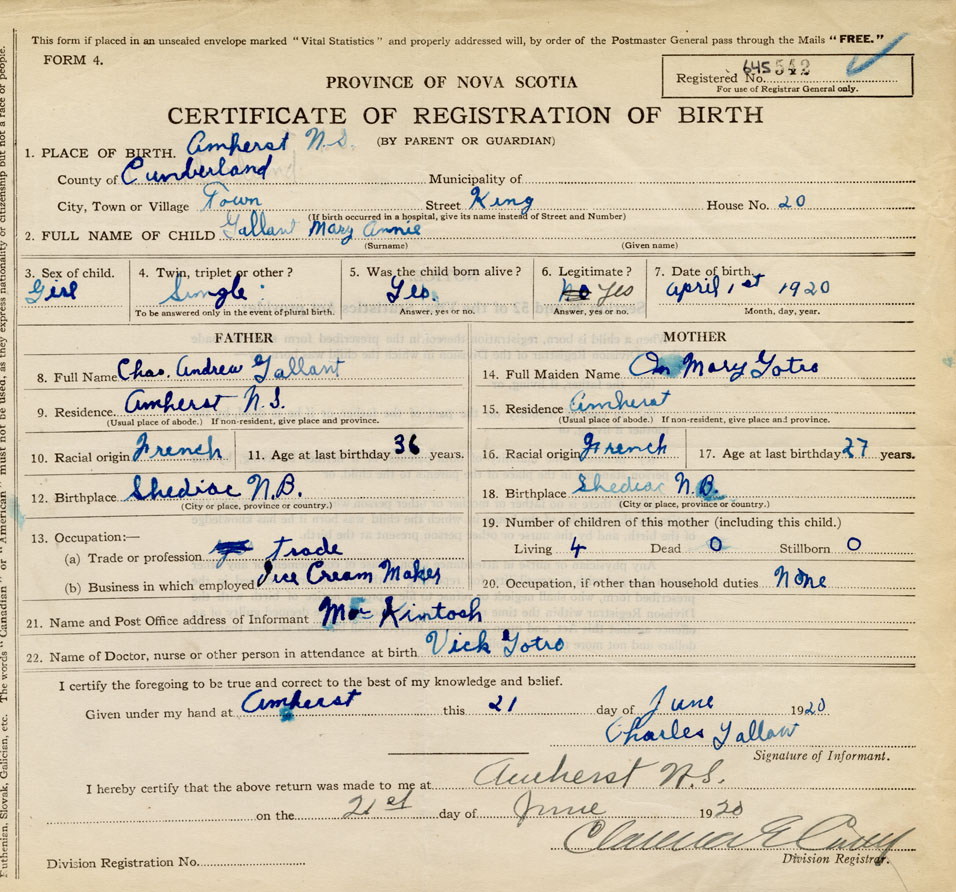 This form if placed in an unsealed envelope marked "Vital Statistics" and properly addressed will, by order of the Postmaster General pass through the Mails "FREE."
FORM 4.
Registered No. 645 542
For use of Registrar General only.
PROVINCE OF NOVA SCOTIA
CERTIFICATE OF REGISTRATION OF BIRTH
(BY PARENT OR GUARDIAN)
1. PLACE OF BIRTH. Amherst N.S.
County of Cumberland Municipality of
City, Town or Village Town Street King House No. 20
(If birth occurred in a hospital, give its name instead of Street and Number)
2. FULL NAME OF CHILD Gallant Mary Annie
(Surname) (Given name)
3. Sex of child. 4. Twin, triplet or other? 5. Was the child born alive? 6. Legitimate? 7. Date of birth.
Girl Single Yes. No Yes April 1st 1920
To be answered only in the event of plural birth. Answer, yes or no. Answer, yes or no. Month, day, year.
FATHER MOTHER
8. Full Name Chas. Andrew Gallant 14. Full Maiden Name Mary Gotro
9. Residence. Amherst N.S. 15. Residence Amherst
(Usual place of abode.) If non-resident, give place and province. (Usual place of abode.) If non-resident, give place and province.
10. Racial origin French 11. Age at last birthday 36 years. 16. Racial origin French 17. Age at last birthday 27 years.
12. Birthplace Shediac N.B. 18. Birthplace Shediac N.B.
(City or place, province or country.) (City or place, province or country.)
13. Occupation:— 19. Number of children of this mother (including this child.)
(a) Trade or profession trade Living 4 Dead 0 Stillborn 0
(b) Business in which employed Ice Cream Maker 20. Occupation, if other than household duties None
21. Name and Post Office address of Informant Mac Kintosh
22. Name of Doctor, nurse or other person in attendance at birth Vick Gotro
I certify the foregoing to be true and correct to the best of my knowledge and belief.
Given under my hand at Amherst this 21 day of June 1920
Charles Gallant
Signature of Informant.
I hereby certify that the above return was made to me at Amherst N.S.
on the 21st day of June 1920
Clarence E
Division Registration No. Division Registrar.
Ruthenian, Slovak, Galician, etc. The words "Canadian" or "American" must not be used, as they express nationality or citizenship but not a race or people.